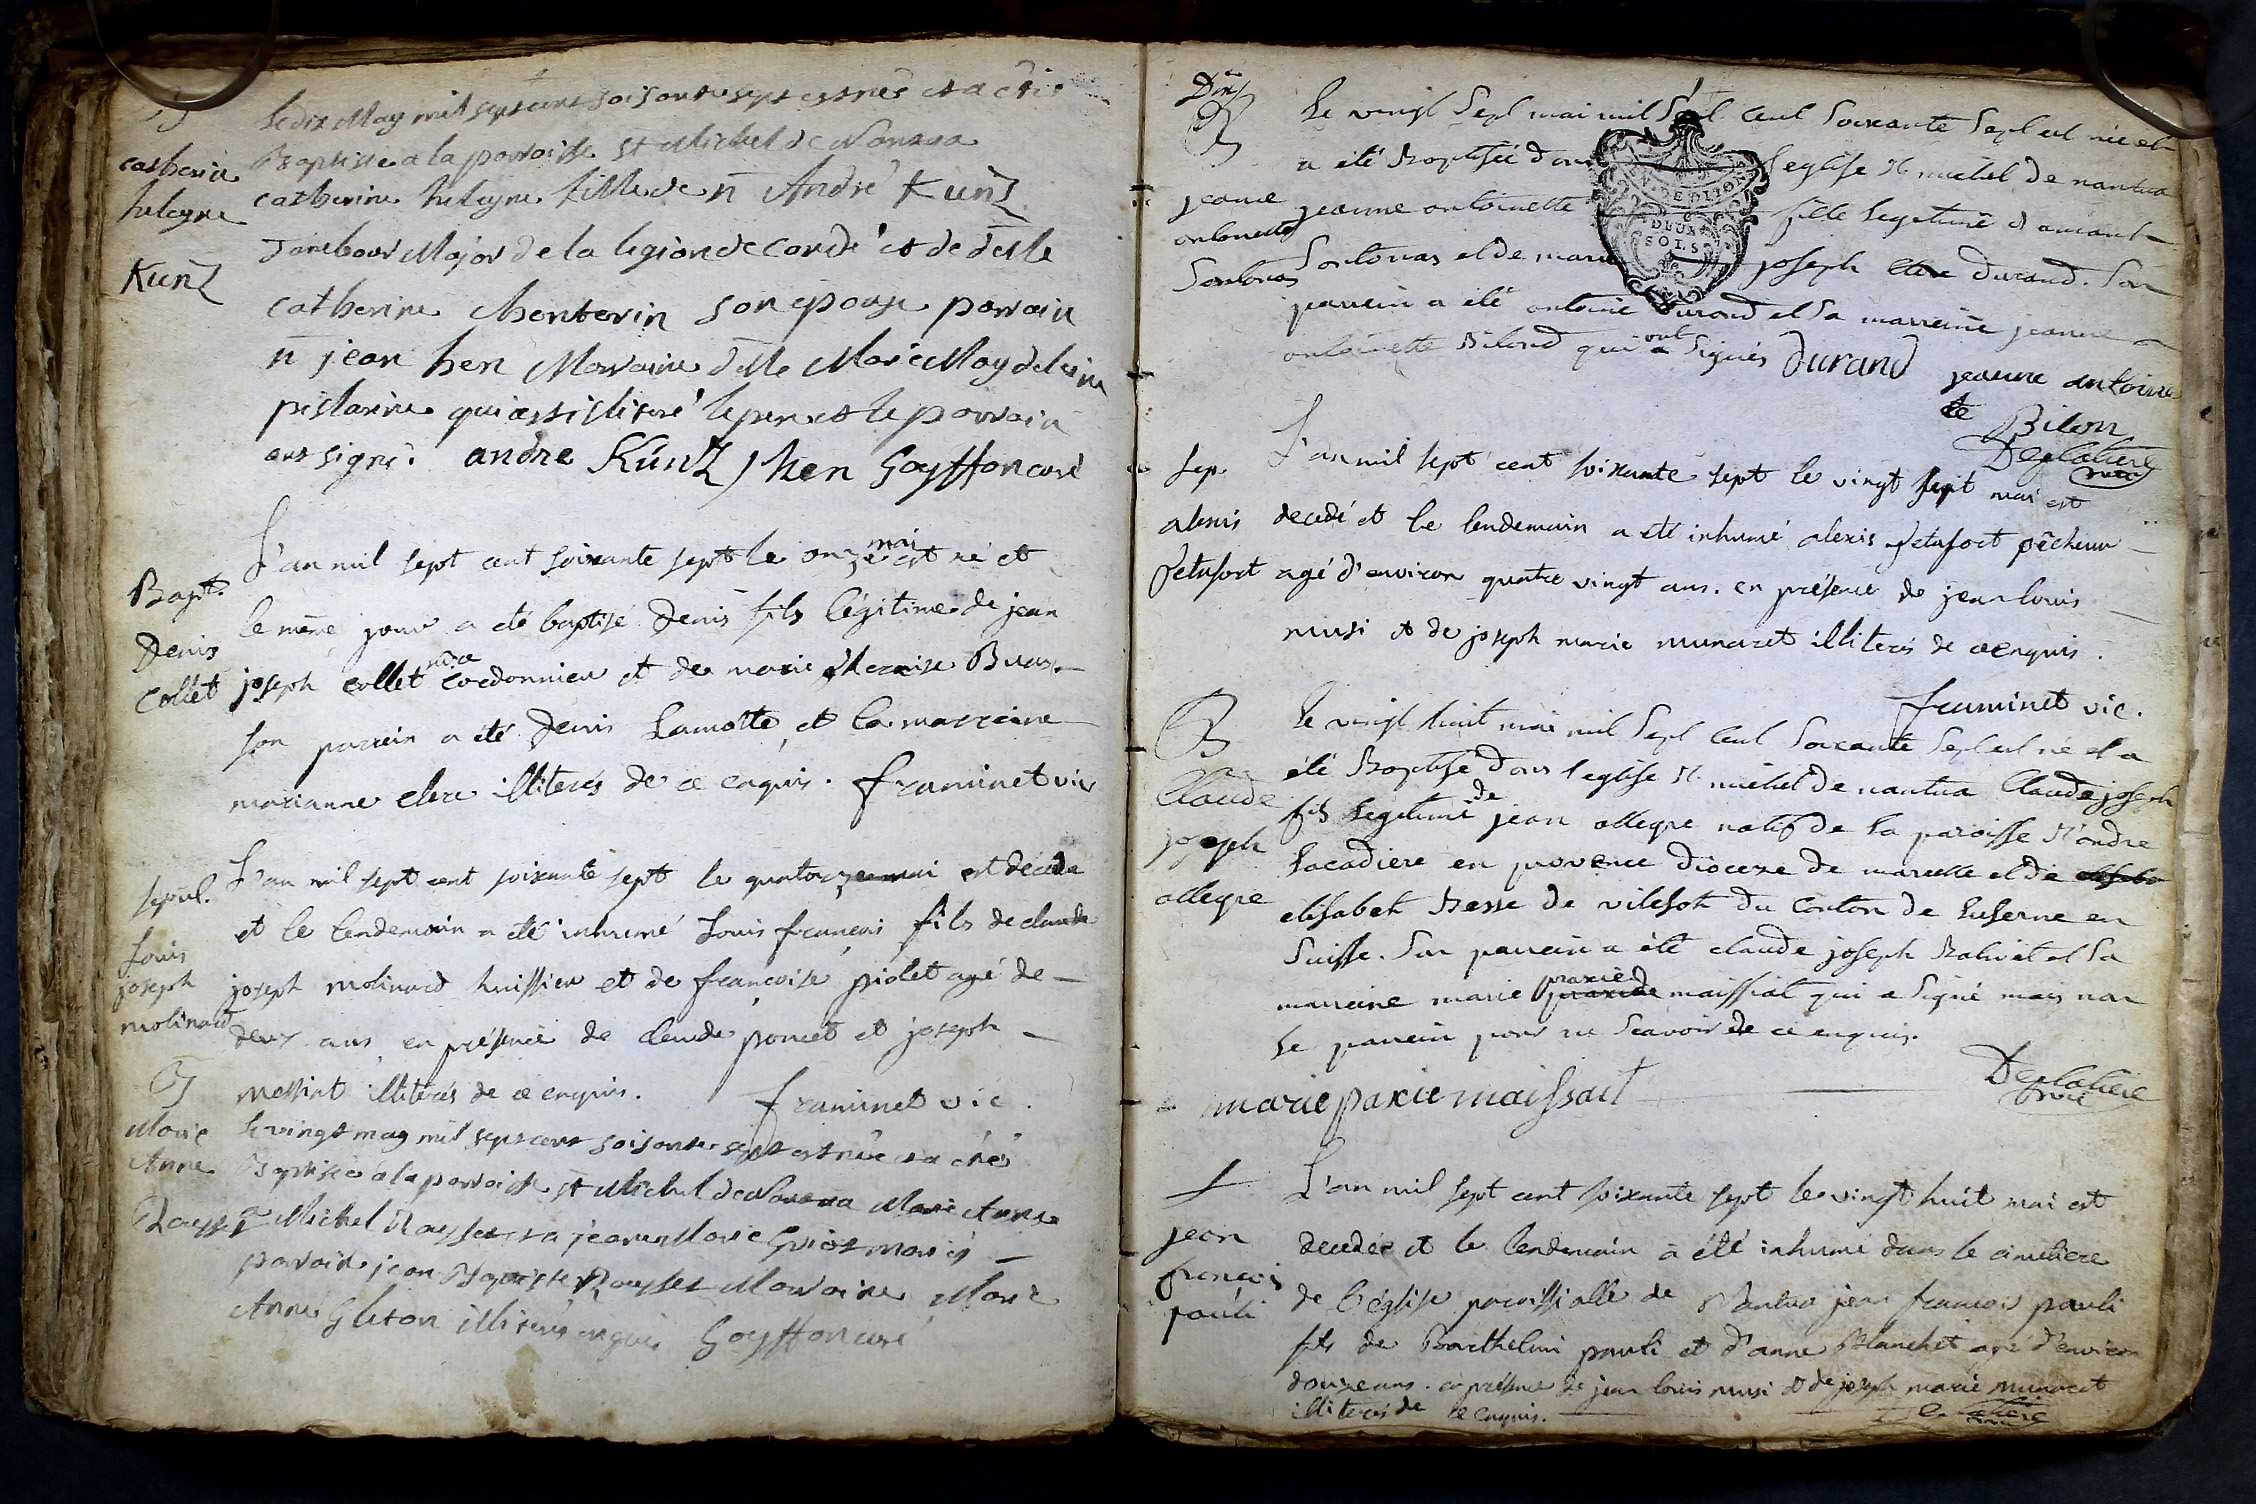 B
catherine
helegne
Kunz
Le dix May mil sept cens soisonte sept est née et a eté
Baptisée a la parroisse St Michel de Nantua
catherine helegne fille de n André Kunz
Tambour Major de la legion de Condé et de delle
catherine Chentorin son epouse parrain
n jean hen Marraine delle Marie Magdeleine
qui est illiteré le pere et le parrain
ont signé. andre Kunz, hen Goyffon curé
Bapt.
Denis
Collet
L'an mil sept cent soixante sept le onze mai est né et
le même jour a été baptisé Denis fils légitime de jean
joseph collet me cordonnier et de marie
son parrein a été Denis Lamotte, et la marreine
marianne clerc illiterés de ce enquis. framinet vic
sepul.
Louis
joseph
molinard
L'an mil sept cent soixante sept le quatorze mai est décédé
et le lendemain a été inhumé Louis françois fils de claude
joseph molinard huissier et de françoise piolet agé de
deux ans en présence de claude poncet et joseph
messiat illiterés de ce enquis. framinet vic.
B
Marie
Anne
Raysset
Le vingt may mil sept cens soisonte sept est née et a eté
Baptisée a la parroisse St Michel de Nantua Marie Anne
a Michel Raysset et a jeanne Marie Guiot mariés
parrain jean Baptiste Raysset Marraine Marie
Anne Gleton illiterés enquis Goyffon curé
B
jeanne
antoinette
Sonthonas
Le vingt Sept mai mil Sept Cent Soixante Sept est née et
a été Baptisée dans l'eglise St michel de nantua
jeanne antoinette fille Legitime d'amant
Sonthonas et de marie joseph Durand. Son
parrein a été antoine Durand et Sa marreine jeanne
antoinette Bilond qui ont Signés Durand
EN. DE. LYON
DEUX
SOLS
jeanne antoine
te Bilon
Deglatiere
vic
sep.
alexis
Jetafort
L'an mil sept cent soixante sept le vingt sept mai est
decedé et le lendemain a été inhumé alexis Jetafort pêcheur
agé d'environ quatre vingt ans. en présence de jean louis
musi et de joseph marie munaret illiterés de ce enquis.
framinet vic.
B
Claude
joseph
allegre
Le vingt huit mai mil Sept Cent Soixante Sept est né et a
été Baptisé dans l'eglise St michel de nantua Claude joseph
fils Legitime de jean allegre natif de La paroisse St andre
Lacadiere en provence Diocese de marselle et de
elisabeth Besse de vilesoh du Conton de Luserne en
Suisse. Son parrein a été claude joseph Balivet et Sa
marreine marie praxede maissiat qui a Signé mais non
Le parrein pour ne Scavoir de ce enquis.
marie paxie maissait
Deglatiere
vic
jean
françois
pauli
L'an mil sept cent soixante sept le vingt huit mai est
decedée et le lendemain a été inhumé dans le cimetiere
de l'église paroissialle de Nantua jean françois pauli
fils de Barthelmi pauli et d'anne Blanchet agé d'environ
douze ans. en présence de jean louis musi et de joseph marie munaret
illiterés de ce enquis. Deglatiere